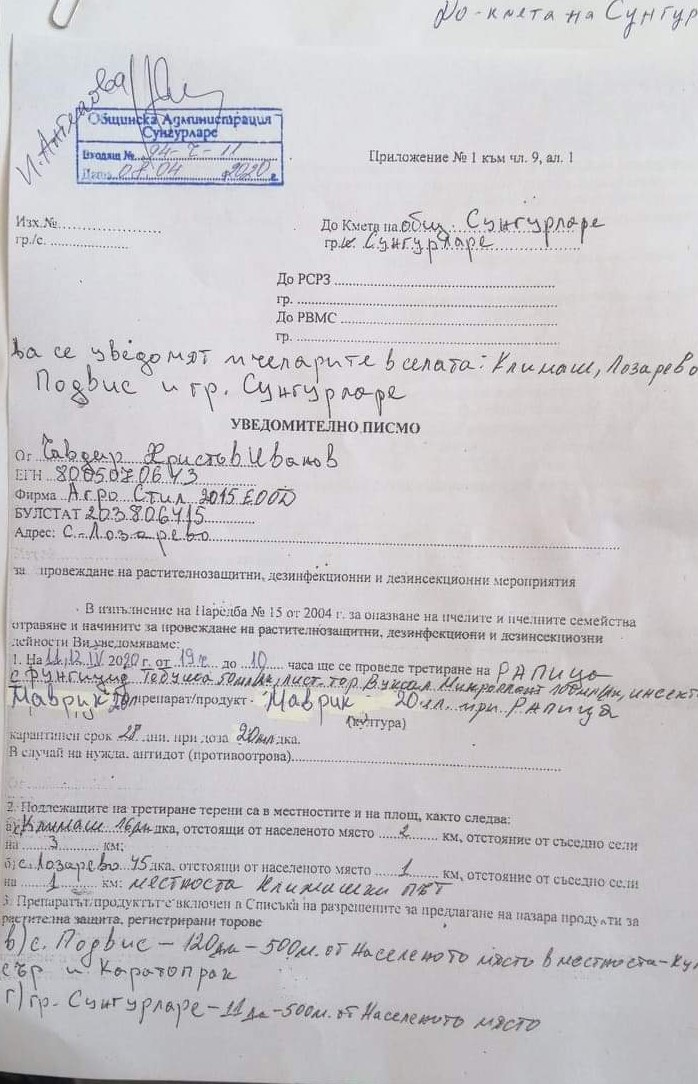 До-кмета на Сунгур
И. Ангелова
Общинска Администрация
Сунгурларе
Входящ № 94-Г-11
Дата 08.04 2020 г.
Приложение № 1 към чл. 9, ал. 1
Изх.№
гр./с.
До Кмета на общ. Сунгурларе
гр. Сунгурларе
До РСРЗ
гр.
До РВМС
гр.
Да се уведомят пчеларите в селата: Климаш, Лозарево
Подвис и гр. Сунгурларе
УВЕДОМИТЕЛНО ПИСМО
От Чавдар Христов Иванов
ЕГН 8005070643
Фирма Агро Стил 2015 ЕООД
БУЛСТАТ 203806415
Адрес: с. Лозарево
за провеждане на растителнозащитни, дезинфекционни и дезинсекционни мероприятия
В изпълнение на Наредба № 15 от 2004 г. за опазване на пчелите и пчелните семейства
отравяне и начините за провеждане на растителнозащитни, дезинфекциони и дезинсекциозни
дейности Ви уведомяваме:
1. На 11,12 IV 2020 г. от 19 ч до 10 часа ще се проведе третиране на РАПИЦА
с фунгицид 50мл/дк, лист. тор Вуксал Микроплант инсект
Маврик 20мл препарат/продукт - Маврик 20 мл. при РАПИЦА
(култура)
карантинен срок 28 дни. при доза 20мл дка.
В случай на нужда. антидот (противоотрова)
2. Подлежащите на третиране терени са в местностите и на площ, както следва:
а) Климаш дка, отстоящи от населеното място 2 км, отстояние от съседно сели
на 3 км;
б) с. Лозарево 45 дка, отстоящи от населеното място 1 км, отстояние от съседно сели
на 1 км: местноста Климашки път
3. Препаратът/продуктът е включен в Списъка на разрешените за предлагане на пазара продукти за
растителна защита, регистрирани торове
в) с. Подвис - 120дка - 500м. от Населеното място в местноста-
и Каратопрак
г) гр. Сунгурларе - 11 дка - 500м. от Населеното място